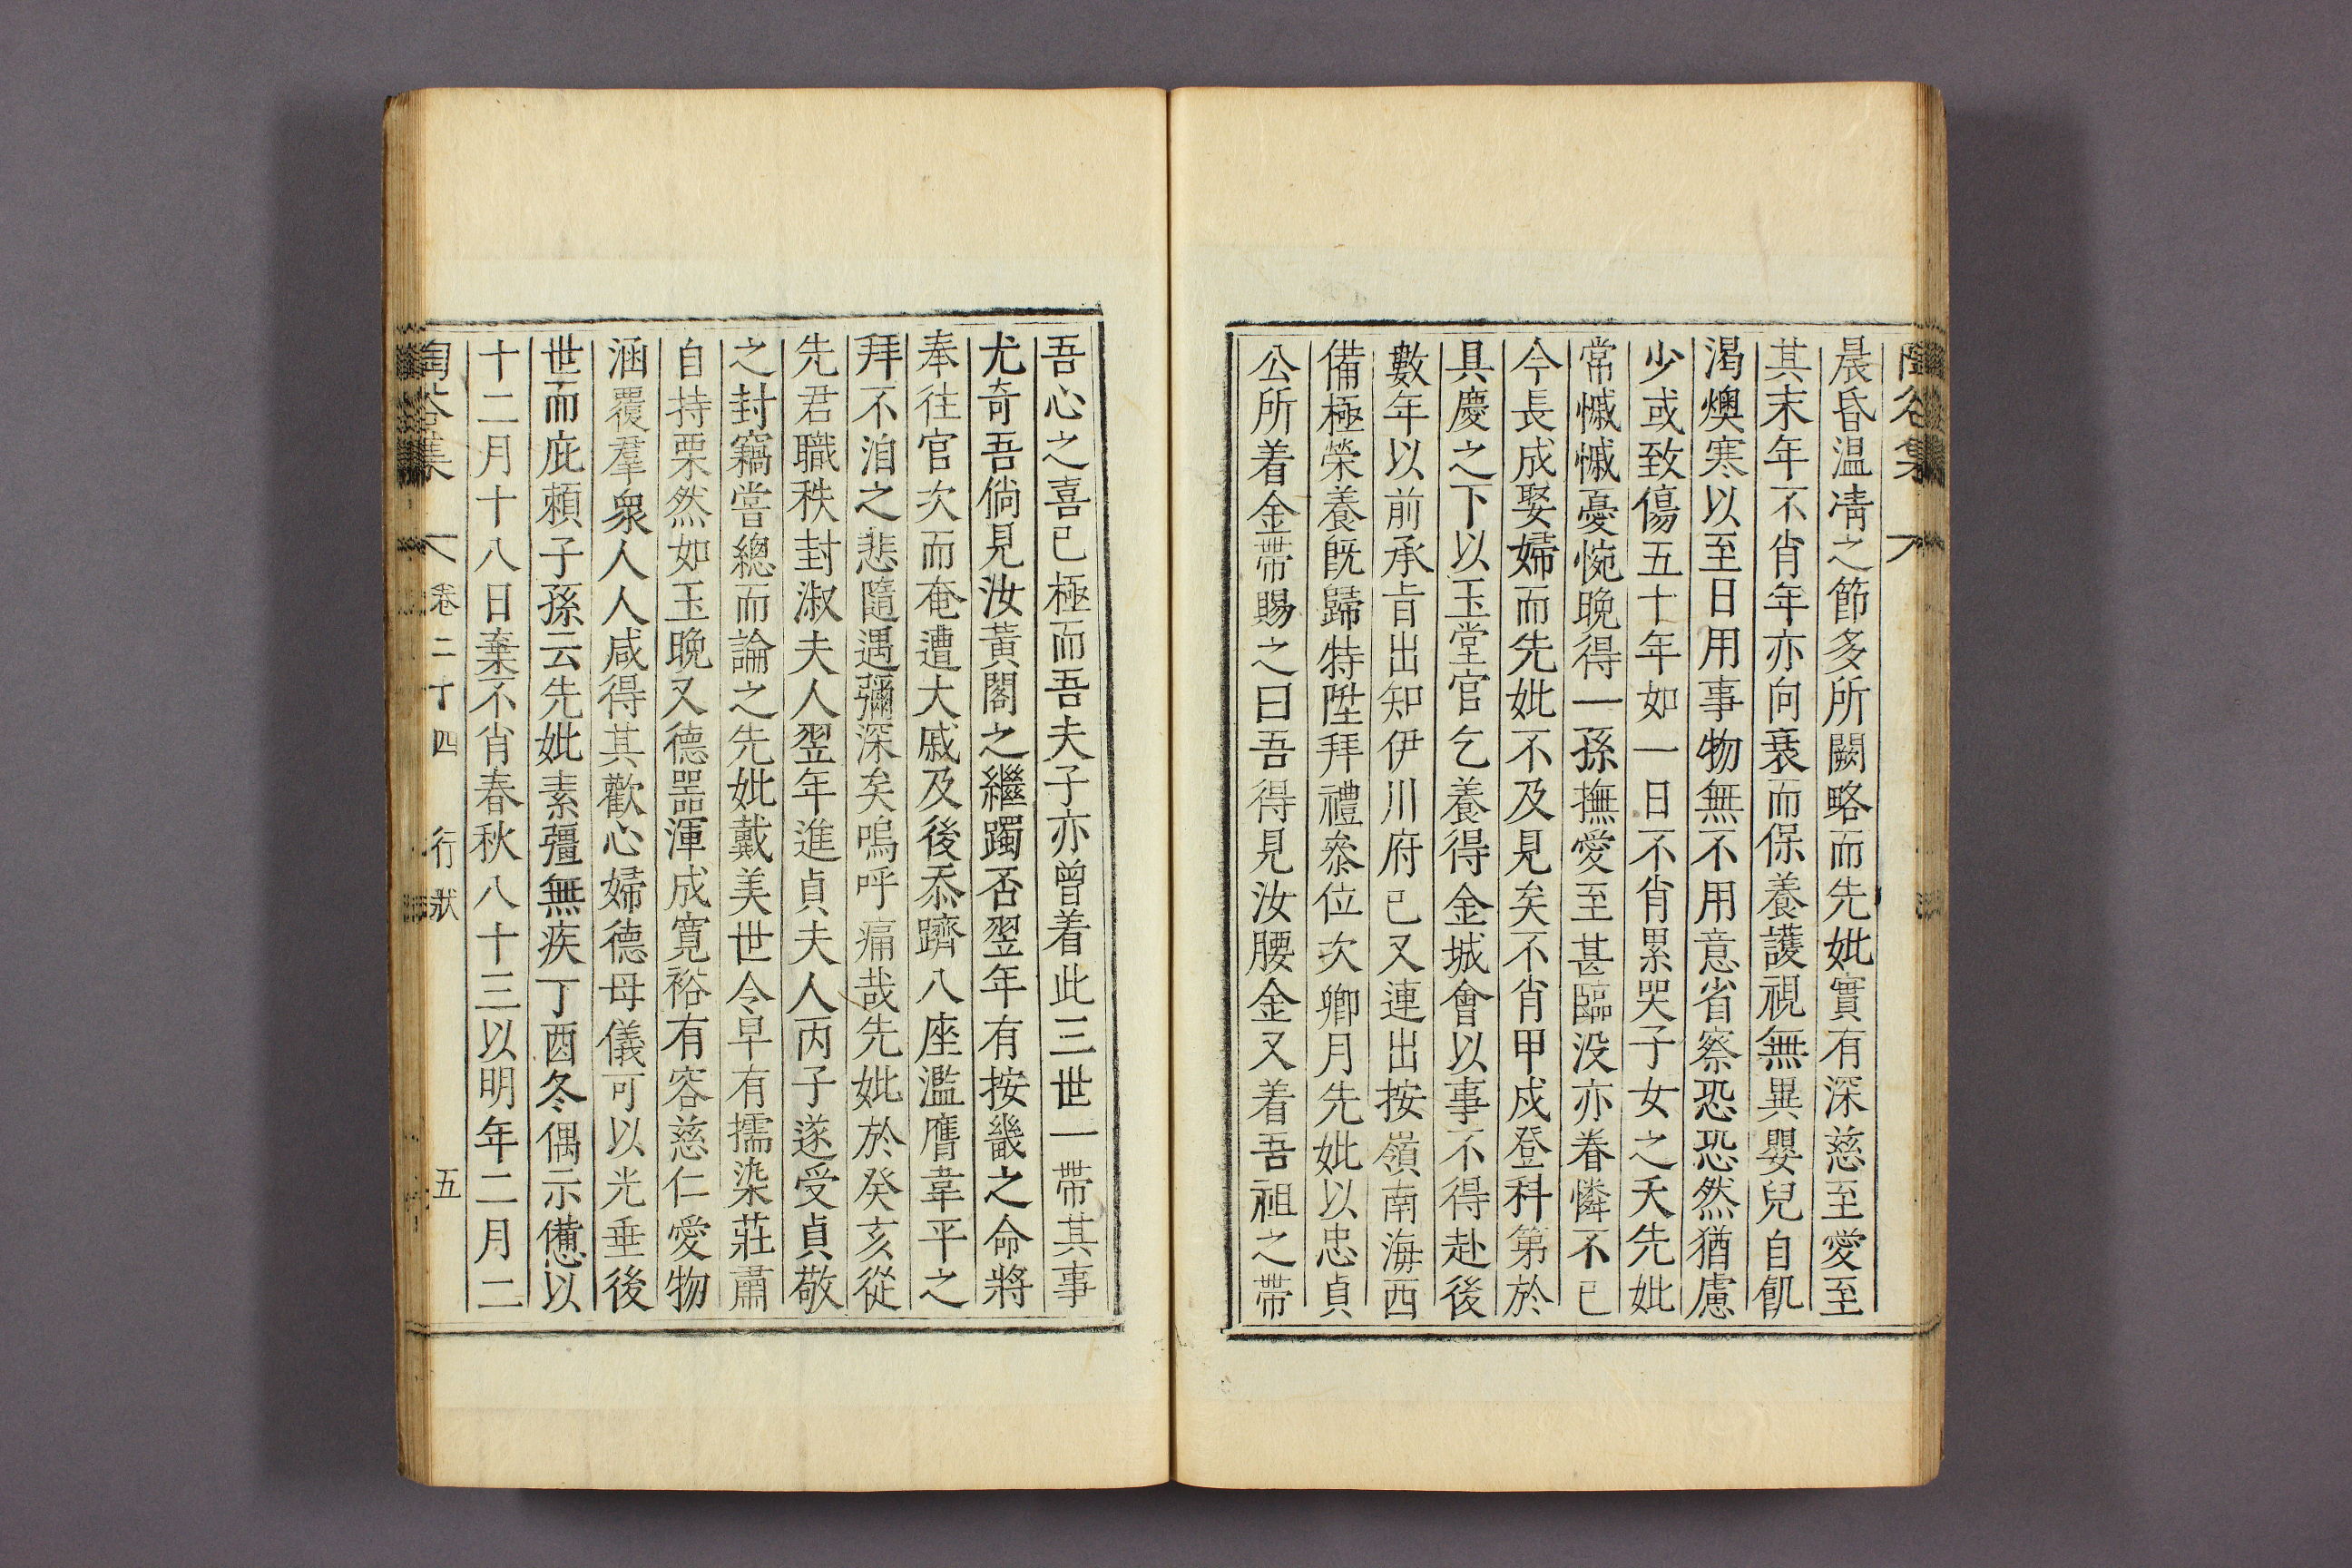 晨昏温凊之節多所闕略而先妣實有深慈至愛至
其末年不肖年亦向衰而保養護視無異嬰兒自飢
渴燠寒以至日用事物無不用意省察恐恐然猶慮
少或致傷五十年如一日不肖累哭子女之夭先妣
常慽慽憂惋晩得一孫撫愛至甚臨沒亦眷憐不已
今長成娶婦而先妣不及見矣不肖甲戍登科第於
具慶之下以玉堂官乞養得金城會以事不得赴後
數年以前承旨出知伊川府已又連出按嶺南海西
備極榮養旣歸特陞拜禮叅位次卿月先妣以忠貞
公所着金帶賜之曰吾得見汝腰金又着吾祖之帶
吾心之喜已極而吾夫子亦曾着此三世一帶其事
尤奇吾倘見汝黃閣之繼躅否翌年有按畿之命將
奉往官次而奄遭大戚及後忝躋八座濫膺韋平之
拜不洎之悲隨遇彌深矣嗚呼痛哉先妣於癸亥從
先君職秩封淑夫人翌年進貞夫人丙子遂受貞敬
之封竊嘗總而論之先妣戴美世令早有擩染莊肅
自持栗然如玉晩又德噐渾成寬裕有容慈仁愛物
涵覆羣衆人人咸得其歡心婦德母儀可以光垂後
世而庇賴子孫云先妣素彊無疾丁酉冬偶示憊以
十二月十八日棄不肖春秋八十三以明年二月二
陶谷集 卷二十四 行狀 五